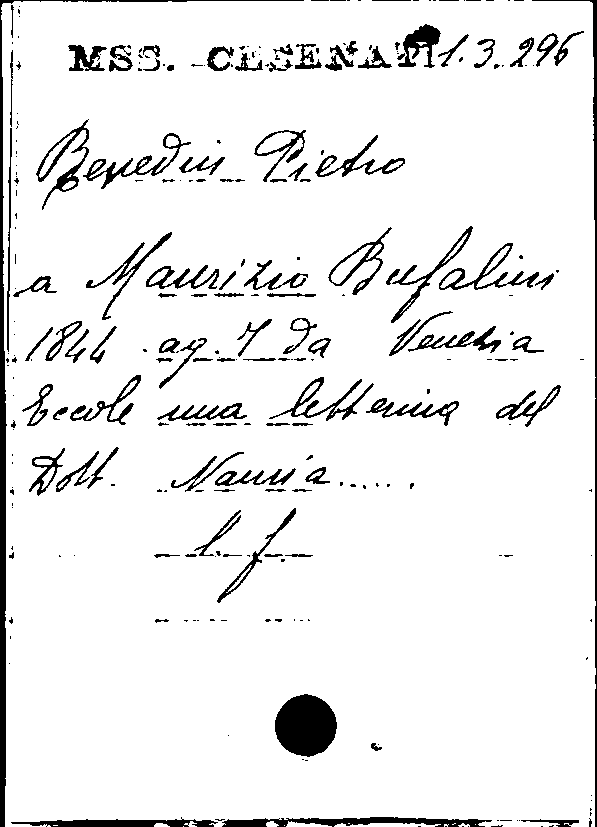 MSS. CESENATI 1.3.296
Benedini Pietro
a Maurizio Bufalini
1844 ag. 7 da Venezia
Eccole una letterina del
Dott. Nannia.....
l. f.